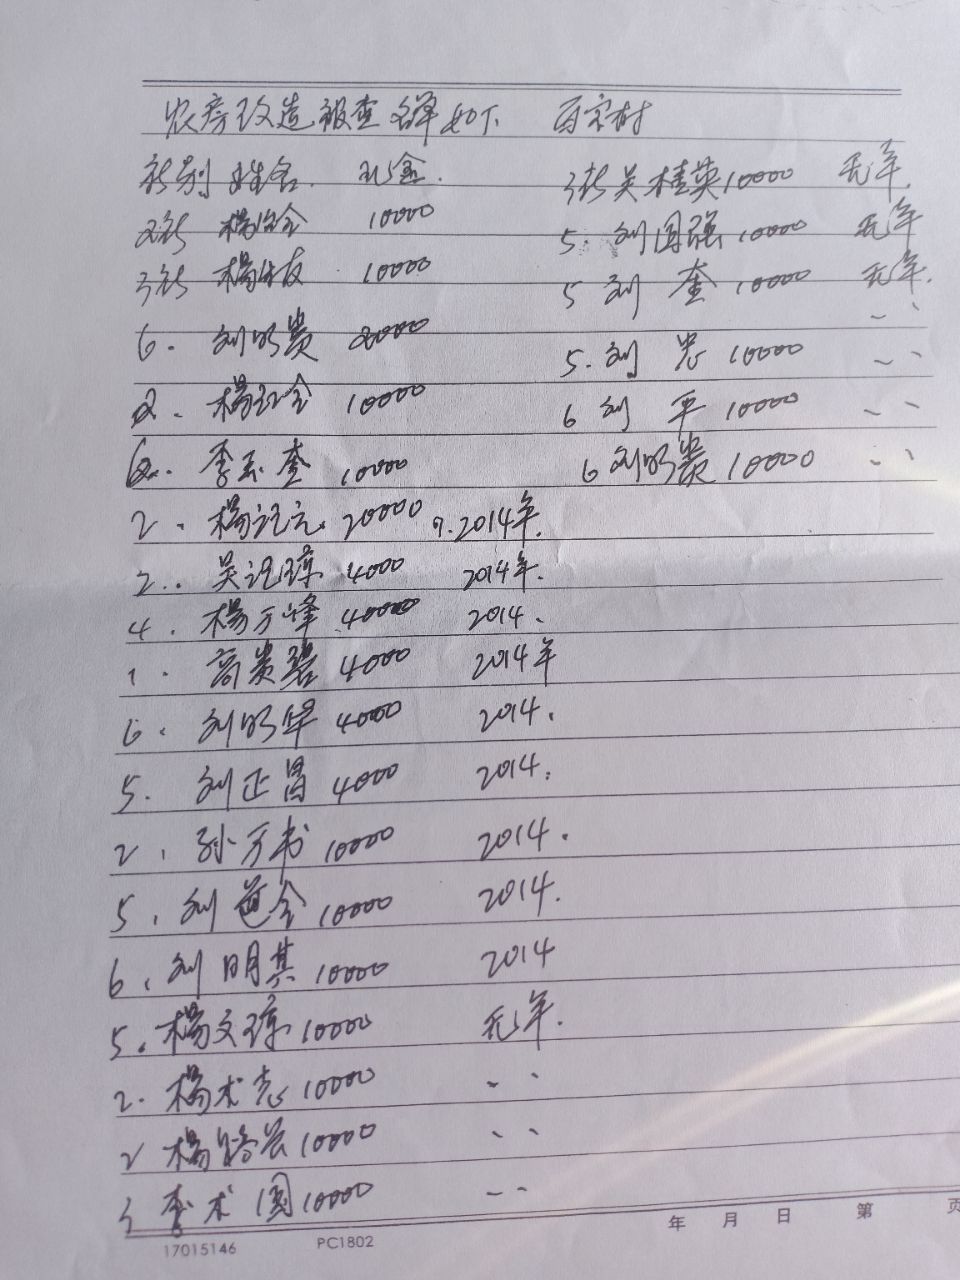 农房改造被查名单如下 百宗村
社别 姓名. 现金.
2社 杨金 10000
3社 杨友 10000
6. 刘明贵 20000
2. 杨红全 10000
2. 李玉奎 10000
2. 杨记元 20000 2014年.
2.. 吴记琼 4000 2014年.
4. 杨万峰 40000 2014.
1. 高贵碧 4000 2014年
6. 刘明华 4000 2014.
5. 刘正昌 4000 2014.
2. 孙万书 10000 2014.
5. 刘道全 10000 2014.
6. 刘明其 10000 2014
5. 杨文琼 10000 无年.
2. 杨术志 10000 〃
2 杨 10000 〃
3 李术国 10000 〃
3社 吴桂英 10000 无年.
5. 刘国强 10000 无年
5 刘奎 10000 无年.
5. 刘忠 10000 〃
6 刘平 10000 〃
6 刘明贵 10000 〃
年 月 日 第 页
17015146 PC1802